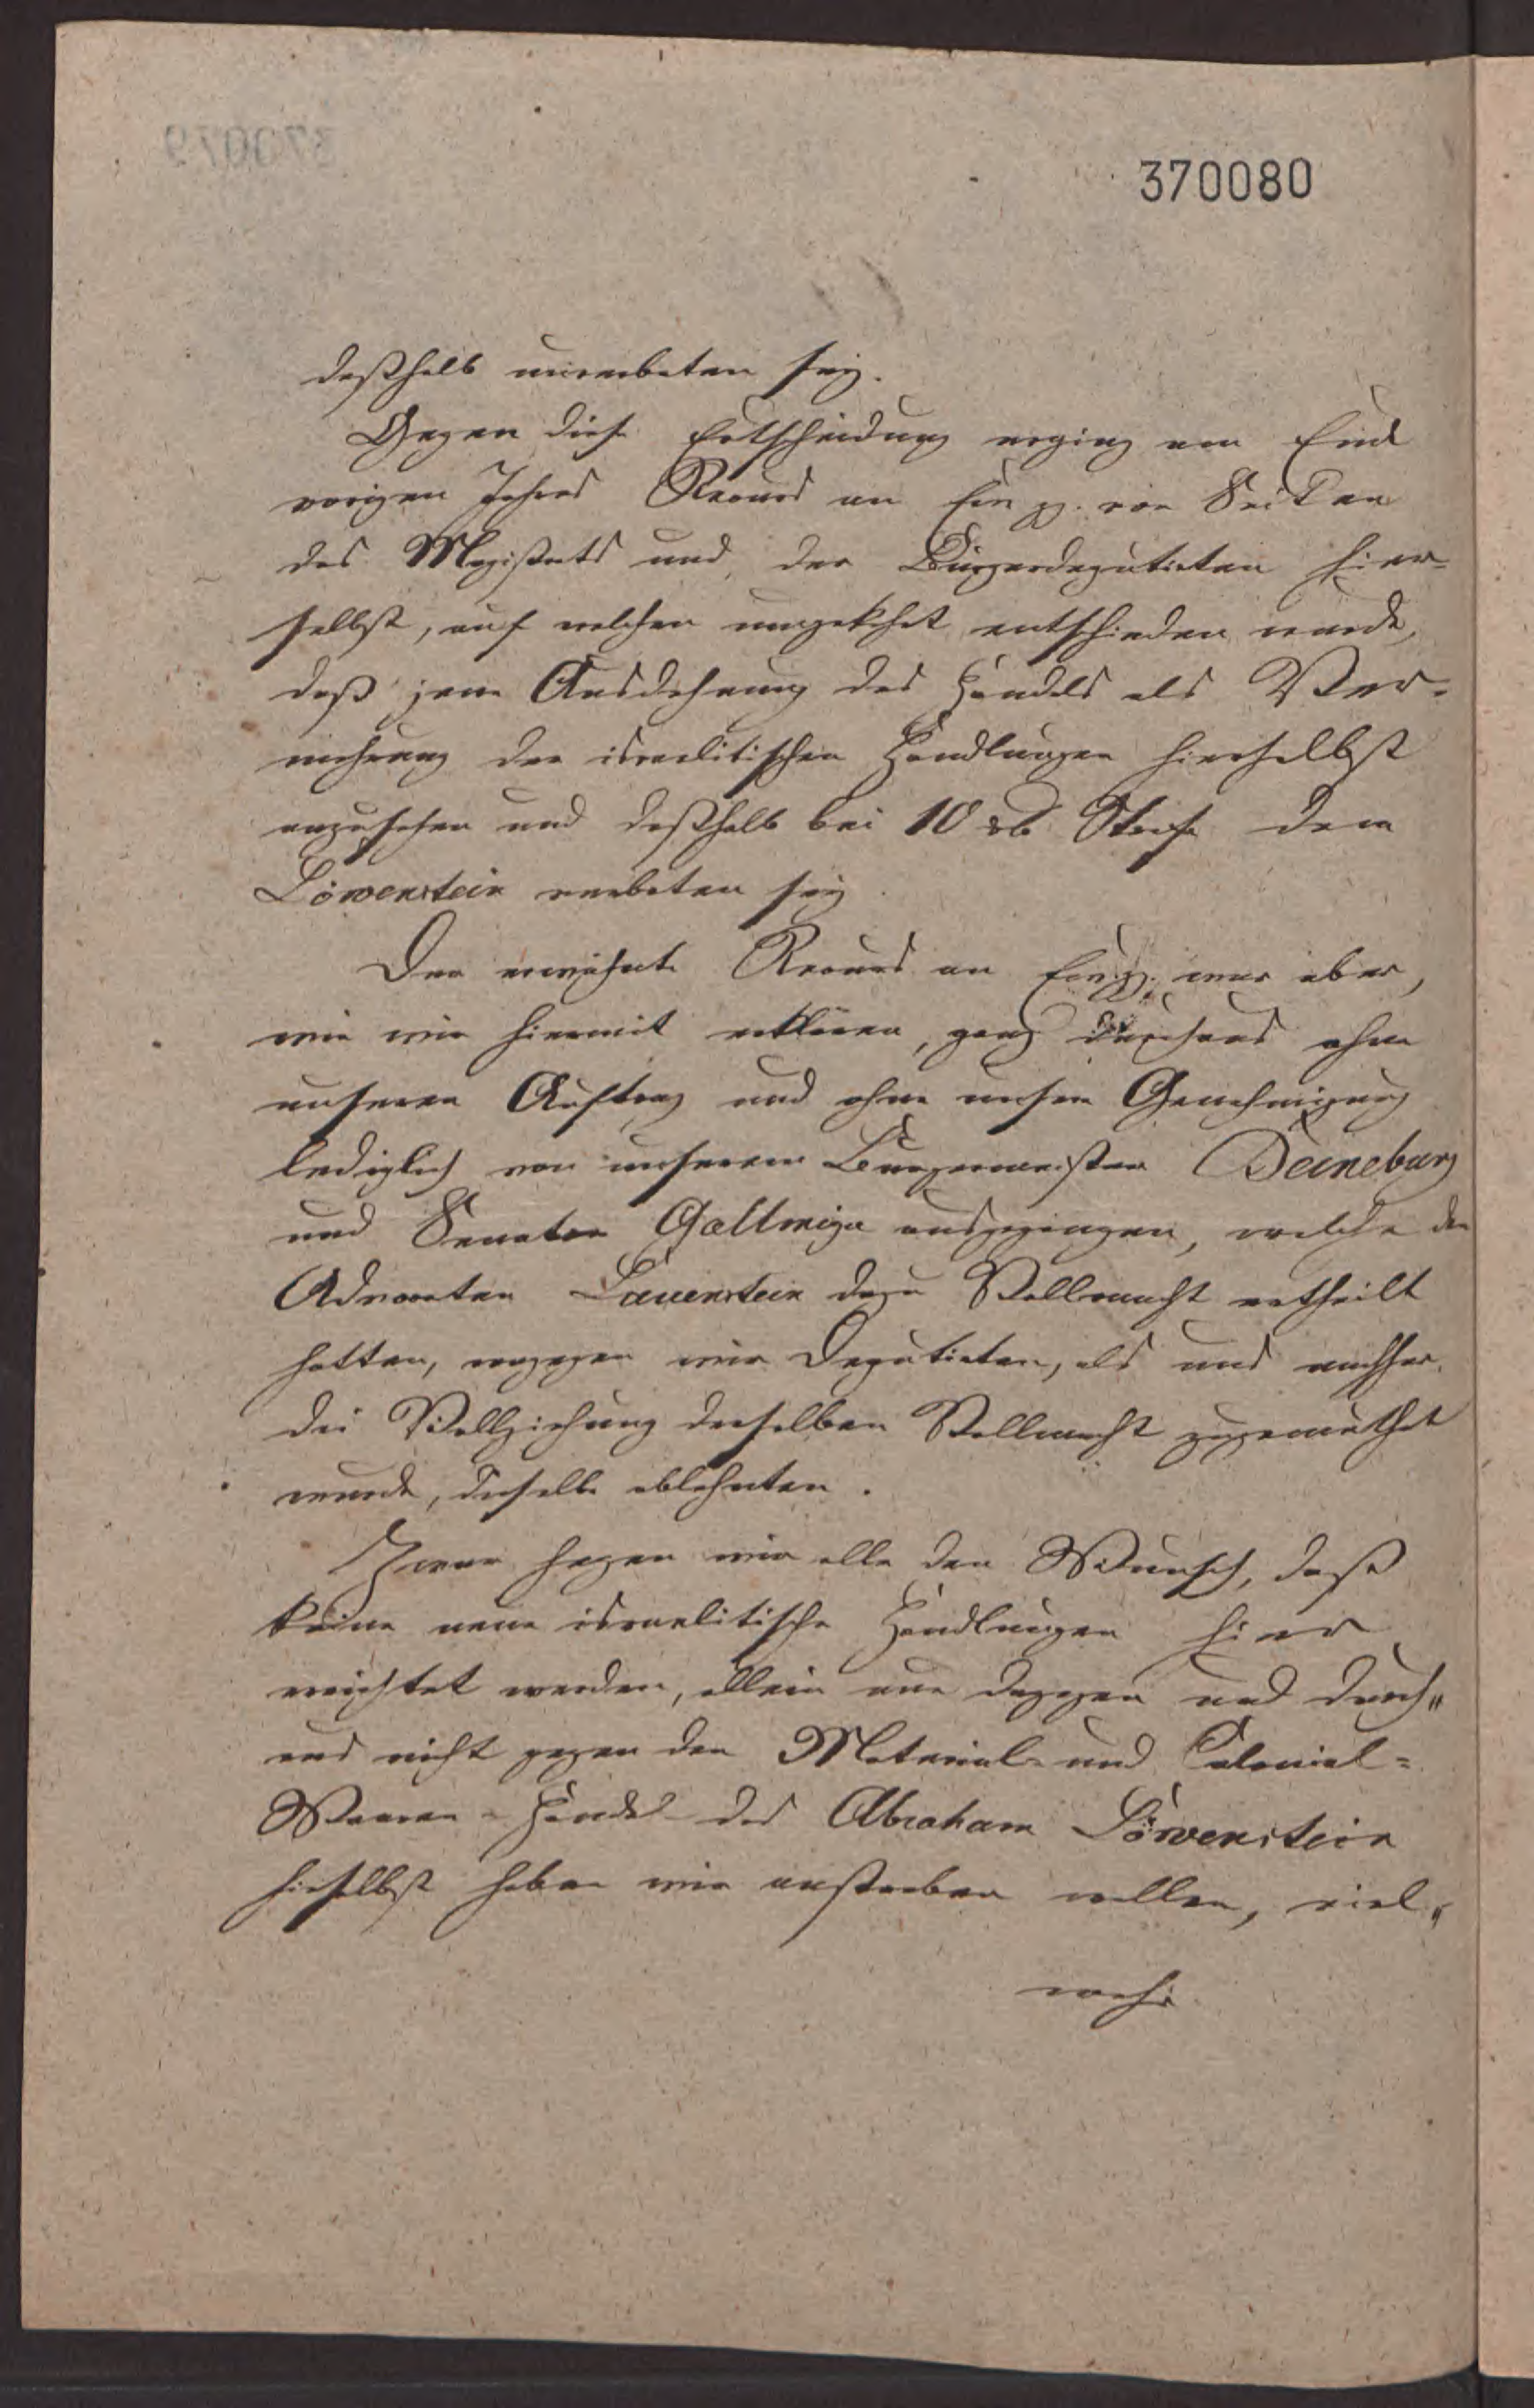 370080
deßhalb unverboten sey.
Gegen diese Entscheidung erging am Ende
vorigen Jahres Recurs an Ew. pp. von Seiten
des Magistrats und der Bürgerdeputirten hier-
selbst, auf welchen umgekehrt entschieden wurde,
daß jene Ausdehnung des Handels als Ver-
mehrung der israelitischen Handlungen hierselbst
anzusehen und deßhalb bei 10 rb Strafe dem
Löwenstein verboten sey.
Der erwähnte Recurs an Ew. pp. war aber,
wie wir hiermit erklären, ganz durchaus ohne
unseren Auftrag und ohne unsere Genehmigung
lediglich von unserem Burgermeister Deineburg
und Senator ausgegangen, welche den
Advocaten Lauenstein dazu Vollmacht ertheilt
hatten, wogegen wir Deputirten, als uns nachher
die Vollziehung derselben Vollmacht zugemuthet
wurde, dieselbe ablehnten.
Zwar hegen wir alle den Wunsch, daß
keine neue israelitische Handlungen hier
errichtet werden, allein nur dagegen und durch„
aus nicht gegen den Material- und Colonial=
Waaren-Handel des Abraham Löwenstein
hieselbst haben wir anstreben wollen, viel„
mehr